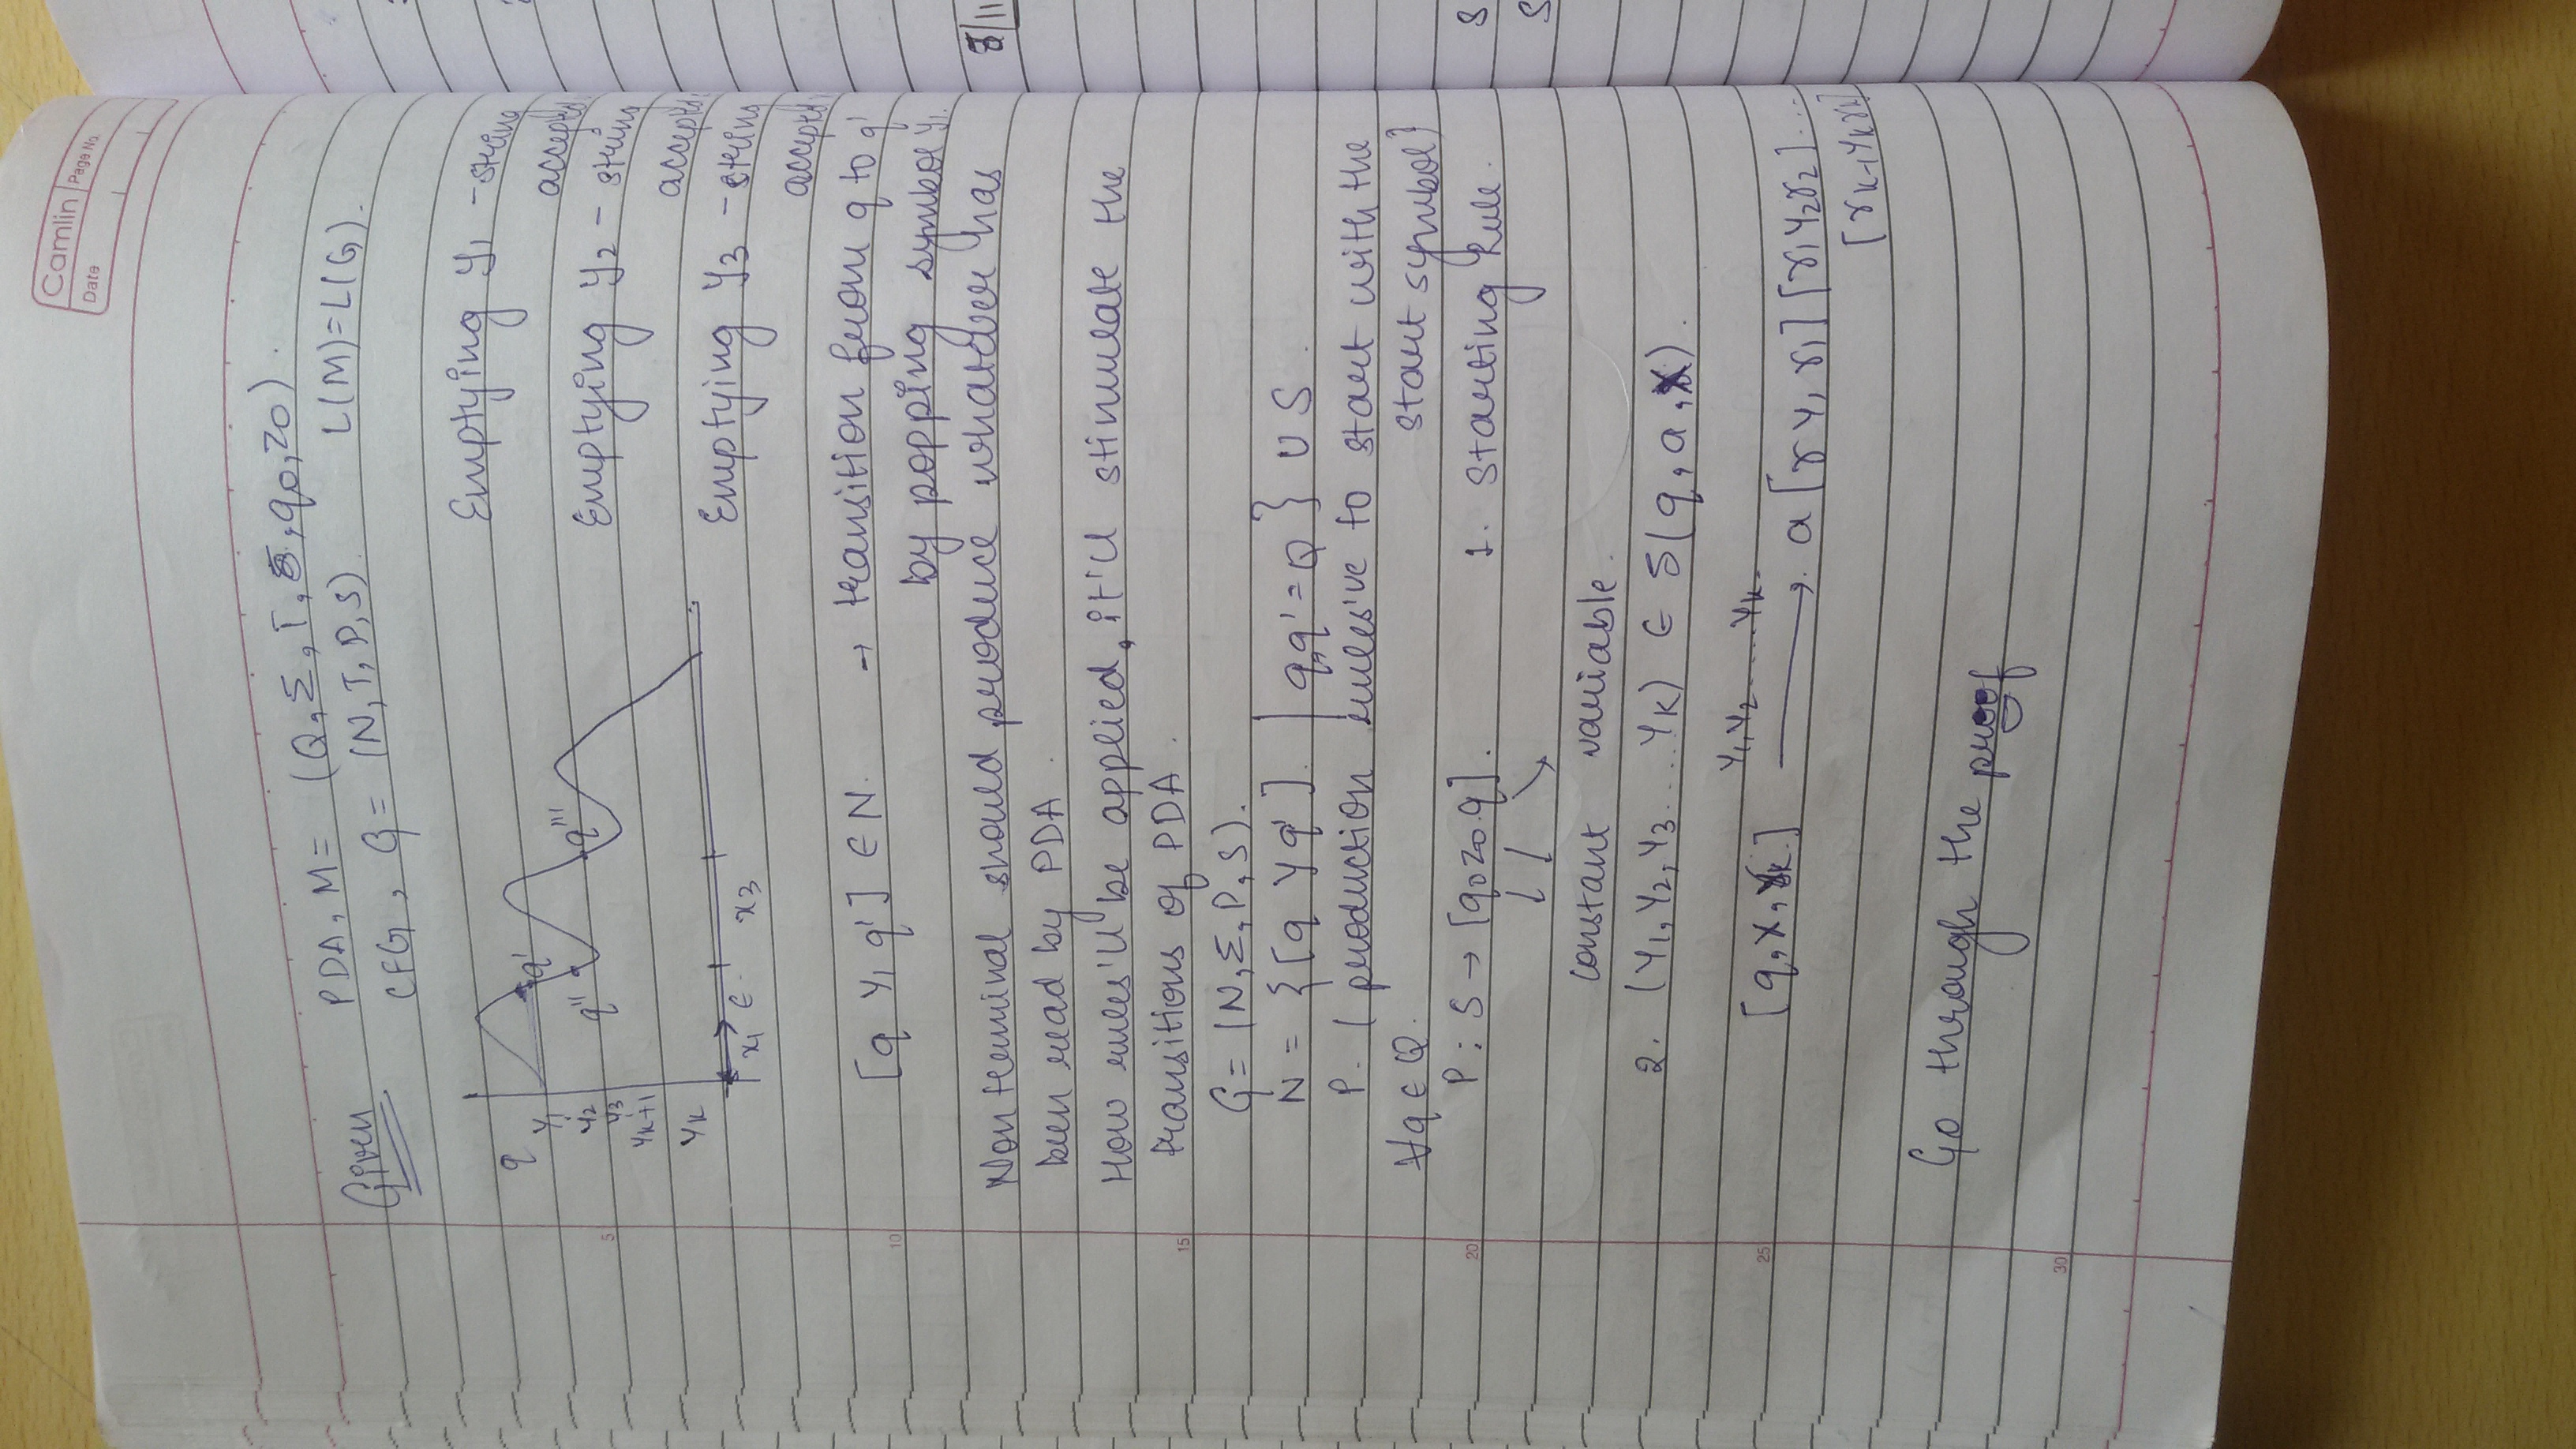 Camlin Page No.
Date
Given PDA, M = (Q, Σ, Γ, δ, q0, z0).
CFG, G = (N, T, P, S). L(M)=L(G).
q
Y1 q'
Y2 q'' q'''
Y3
YK+1
YK
x1 ε x3
Emptying Y1 - string
accepted.
Emptying Y2 - string
accepted.
Emptying Y3 - string
accepted.
[q Y1 q'] ∈ N. → transition from q to q'
by popping symbol Y1.
Non terminal should produce whatever has
been read by PDA.
How rules'll be applied, it'll stimulate the
transitions of PDA.
G = (N, Σ, P, S).
N = {[q Y q'] | q,q' = Q} ∪ S.
P. ( production rules've to start with the
∀q ∈ Q. start symbol}
P : S → [q0 z0 q]. 1. Starting Rule.
↓ ↓ ↘
constant variable.
2. (Y1, Y2, Y3 .... YK) ∈ δ(q, a, X).
Y1, Y2 ...... YK.
[q, X, K.] → a [r Y1 r1] [r1 Y2 r2] ...
[rK-1 YK rK]
Go through the proof
5
10
15
20
25
30
8/11
S
S